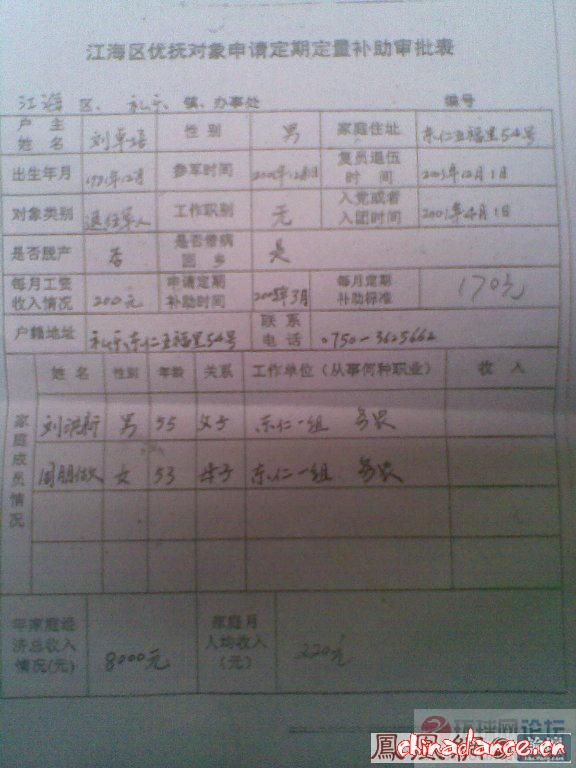 江海区优抚对象申请定期定量补助审批表
江海 区、礼乐 镇、办事处 编号
户主姓名 刘卓培 性别 男 家庭住址 东仁五福里54号
出生年月 1981年12月 参军时间 复员退伍时间 2003年12月1日
对象类别 退伍军人 工作职别 无 入党或者入团时间 2001年4月1日
是否脱产 否 是否带病回乡 是
每月工资收入情况 200元 申请定期补助时间 2005年3月 每月定期补助标准 170元
户籍地址 礼乐东仁五福里54号 联系电话 0750-3625662
家庭成员情况
姓名 性别 年龄 关系 工作单位(从事何种职业) 收入
刘洪新 男 55 父子 东仁一组 务农
周 女 53 母子 东仁一组 务农
年家庭经济总收入情况(元) 8000元 家庭月人均收入(元) 220元
环球网论坛
凤凰网论坛
chinadance.cn